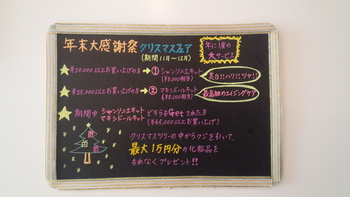 年末大感謝祭 クリスマスフェア
(期間11月~12月)
年に1度の
大サービス
¥20,000以上お買い上げの方
① シャンソニエキット
美白にハリにツヤ!!
¥25,000以上お買い上げの方
② マキシドールキット
最高級のエイジングケア
期間中 シャンソニエキット
マキシドールキット
どちらもGetされた方
(¥45,000以上お買い上げ)
クリスマスツリーの中からクジを引いて、
最大1万円分の化粧品を
もれなくプレゼント!!